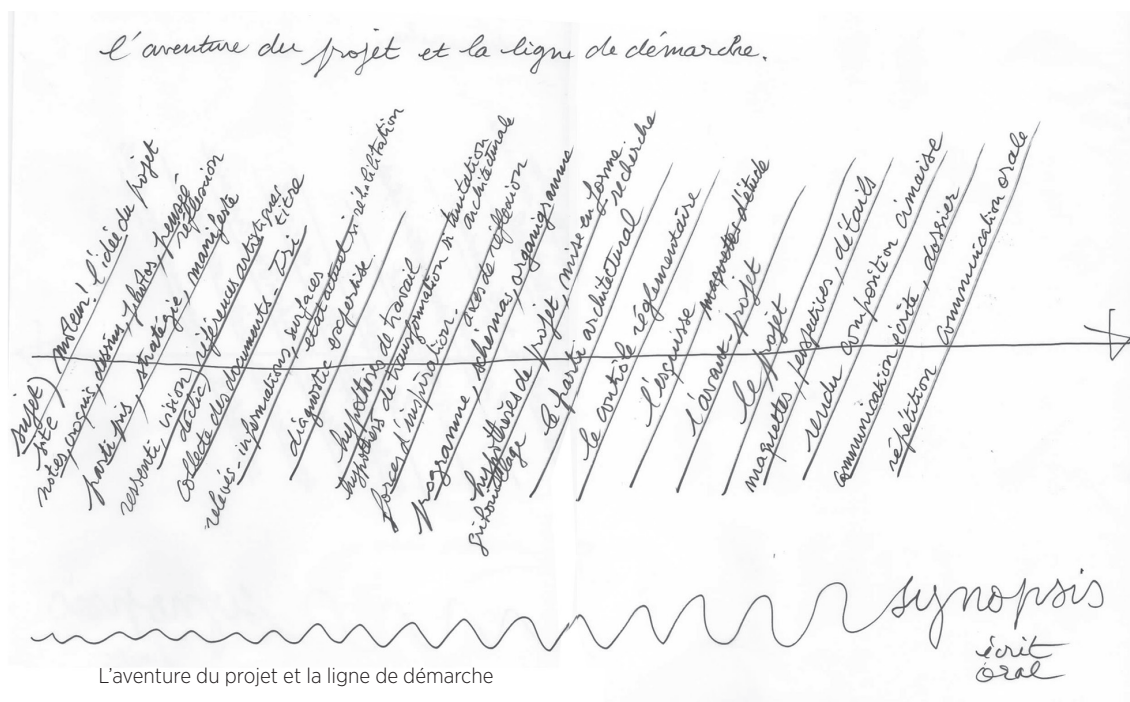 l'aventure du projet et la ligne de démarche.
sujet
site
moteur! l'idée du projet
notes, croquis, dessin, photos, pensée
réflexion
parti pris, stratégie, manifeste
ressenti, vision, références artistiques
déclic, titre
collecte des documents. Tri
relevés - informations, surfaces
état actuel si réhabilitation
diagnostic expertise.
hypothèses de travail
hypothèses de transformation si mutation
architecturale
forces d'inspiration. axes de réflexion
programme, schémas, organigramme
hypothèses de projet, mise en forme
recherche
gribouillage
le parti architectural
le contrôle réglementaire
l'esquisse maquettes d'étude
l'avant-projet
le projet
maquettes, perspectives, détails
rendu composition cimaise
communication écrite, dossier
répétition communication orale
synopsis
écrit
oral
L'aventure du projet et la ligne de démarche